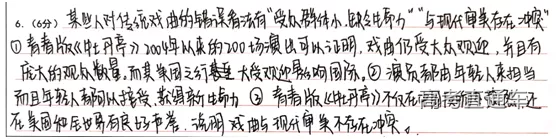 6.(6分) 某些人对传统戏曲的错误看法有“受众群体小,缺乏生命力”“与现代审美存在冲突”
①青春版《牡丹亭》2004年以来的200场演出可以证明,戏曲仍受大众欢迎,并且有
庞大的观众数量,而其美国之行甚至大受欢迎,影响国际。②演员都由年轻人来担当
而且年轻人都可以接受,数得新生命力 ③青春版《牡丹亭》不仅在 还
在美国和世界有良好声誉,说明戏曲与现代审美不存在冲突。